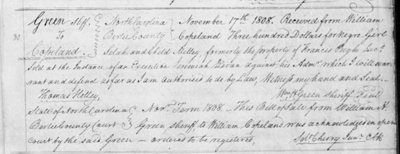 Green Shff. North Carolina November 17th 1808. Received from William
To Bertie County Copeland Three hundred Dollars for Negro Girl
Copeland and Child Kelley, formerly the property of Francis Pugh
Sold at the Instance of an Execution against his Admr. which I will warr-
ant and defend so far as I am authorised to do by Law, Witness my hand and Seal
Thomas Holley Wm Green Sheriff Seal
State of North Carolina Novr. Term 1808. This Bill of Sale from William
Bertie County Court Green Sheriff to William Copeland was acknowledged in open
court by the said Green - ordered to be registered,
Solo Cherry Junr. Clk